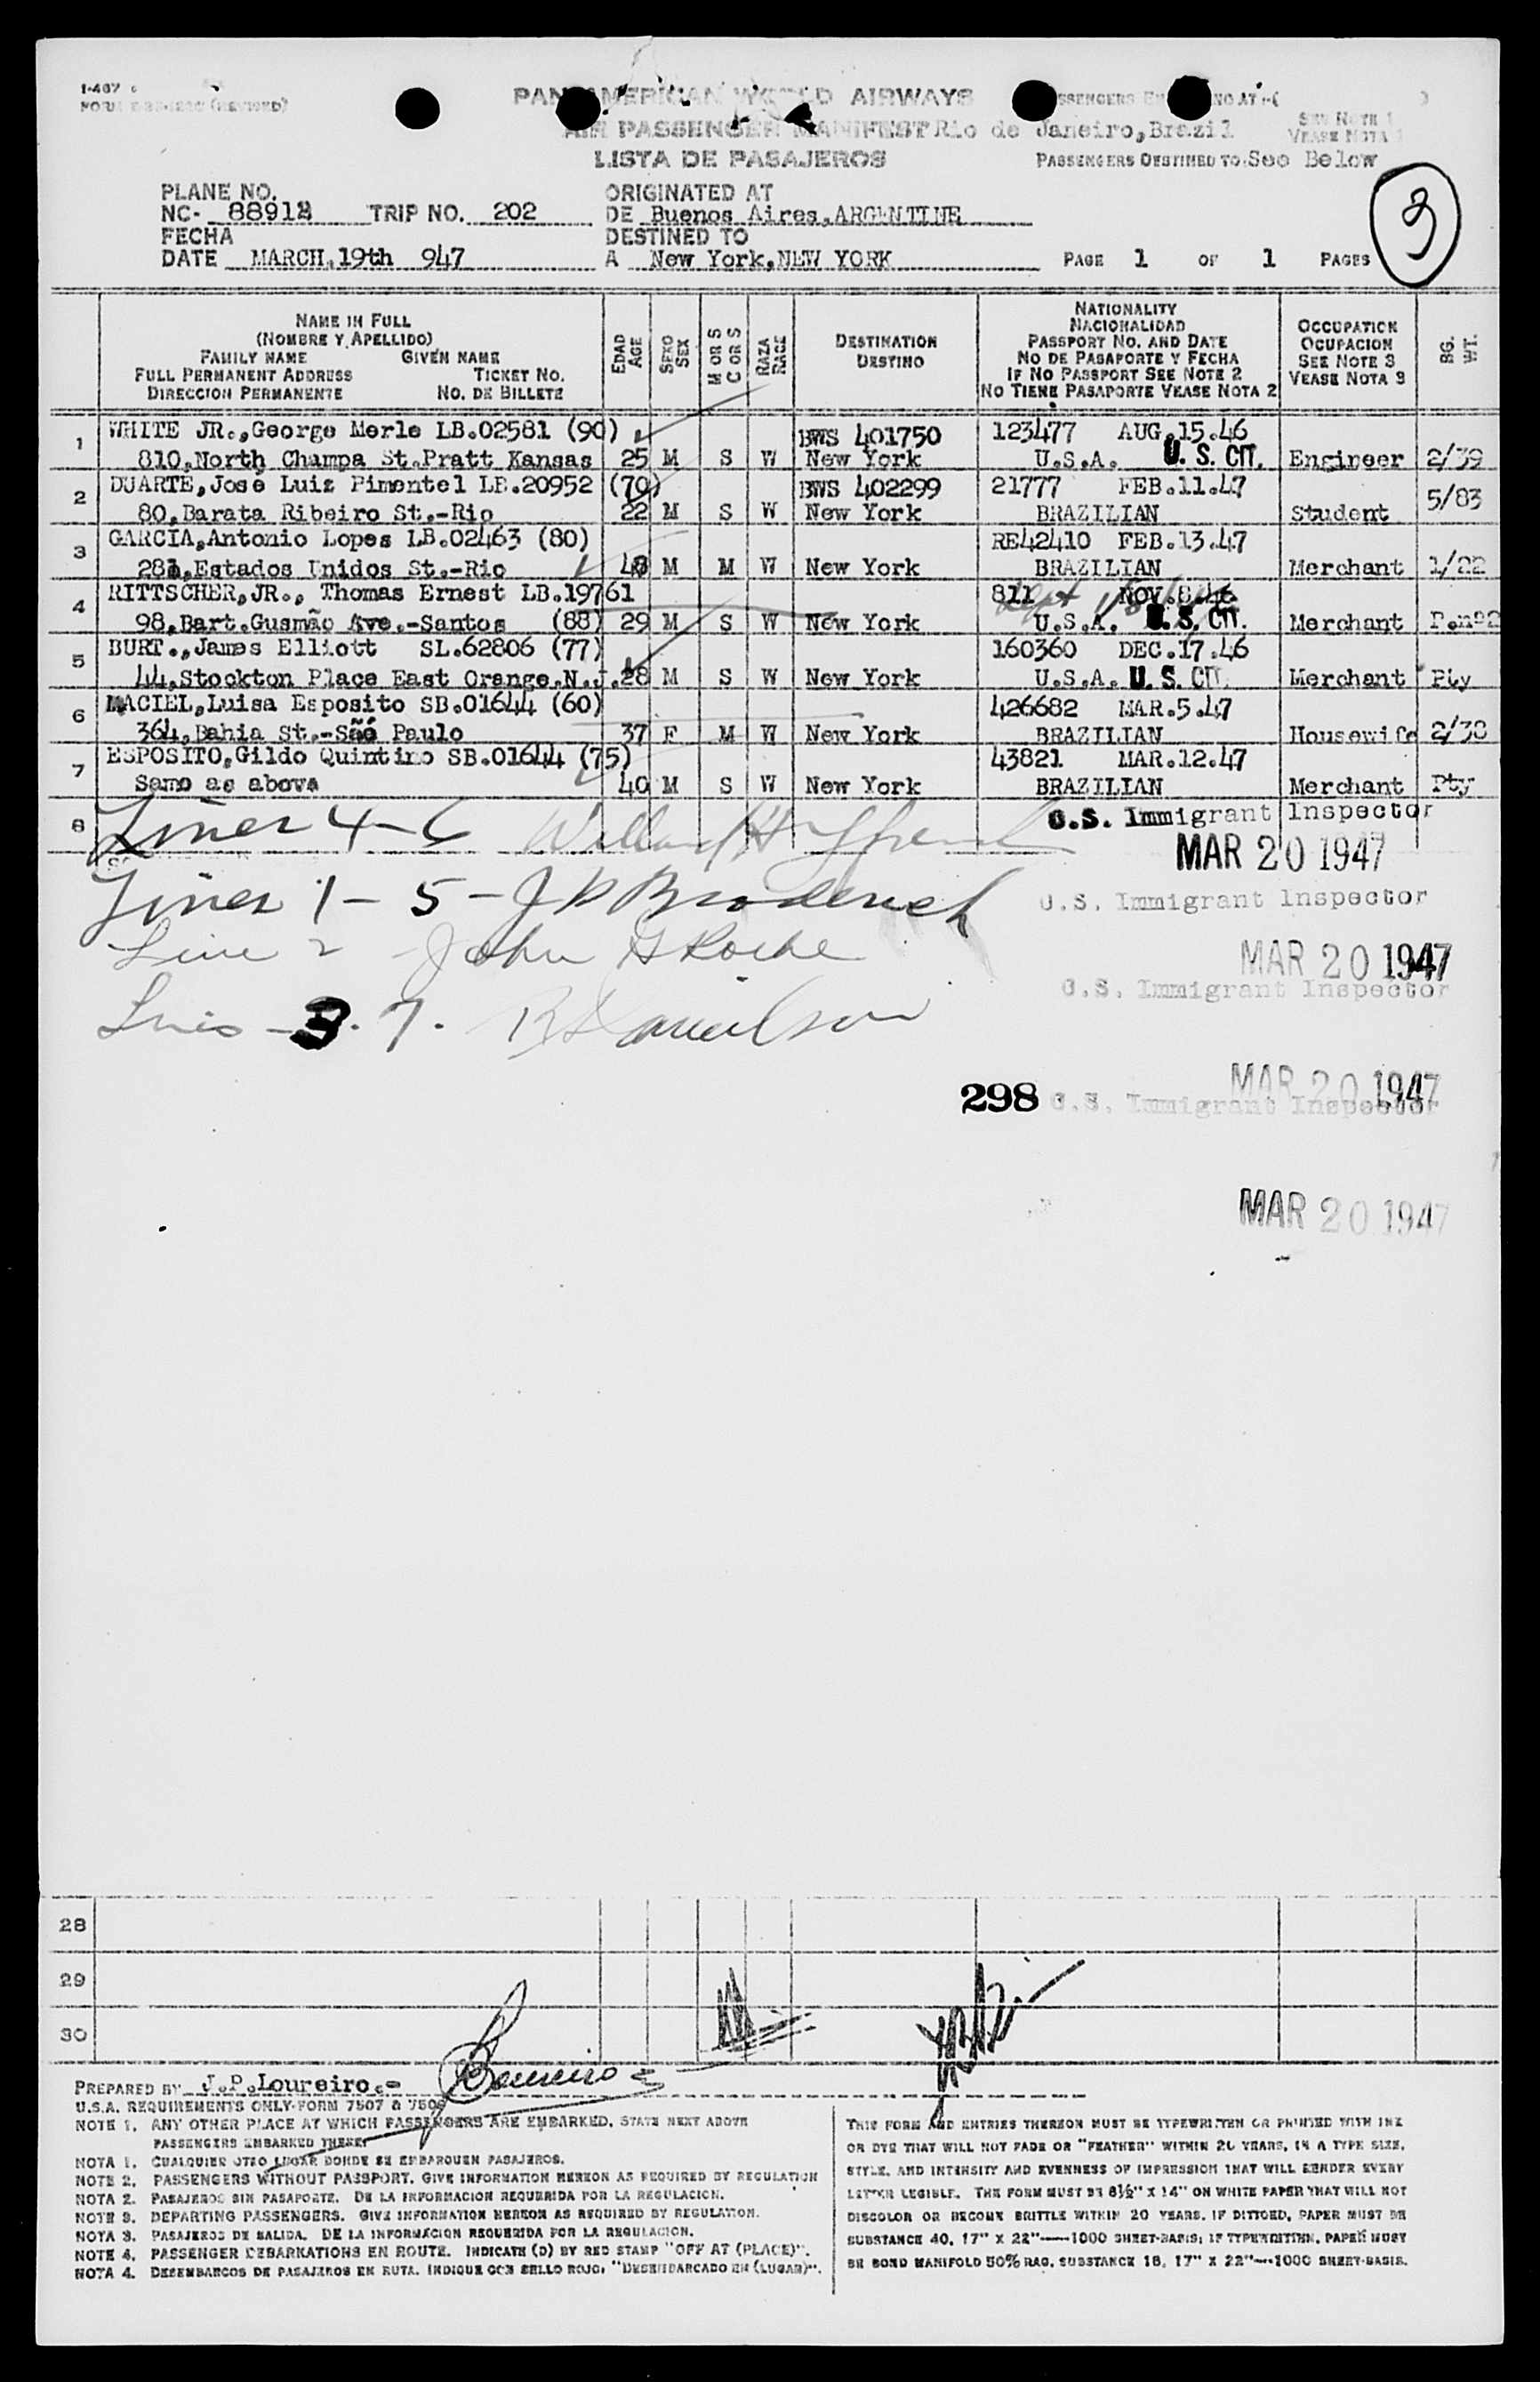 I-467
PAN AMERICAN WORLD AIRWAYS
AIR PASSENGER MANIFEST Rio de Janeiro, Brazil
SEE NOTE 1
VEASE NOTA 1
LISTA DE PASAJEROS
PASSENGERS DESTINED TO: See Below
PLANE NO.
NC- 88912 TRIP NO. 202
ORIGINATED AT
DE Buenos Aires, ARGENTINE
FECHA
DATE MARCH, 19th 947
DESTINED TO
A New York, NEW YORK
PAGE 1 OF 1 PAGES
3
NAME IN FULL
(NOMBRE Y APELLIDO)
FAMILY NAME GIVEN NAME
FULL PERMANENT ADDRESS TICKET NO.
DIRECCION PERMANENTE NO. DE BILLETE
EDAD
AGE
SEXO
SEX
M OR S
C OR S
RAZA
RACE
DESTINATION
DESTINO
NATIONALITY
NACIONALIDAD
PASSPORT NO. AND DATE
NO DE PASAPORTE Y FECHA
IF NO PASSPORT SEE NOTE 2
NO TIENE PASAPORTE VEASE NOTA 2
OCCUPATION
OCUPACION
SEE NOTE 3
VEASE NOTA 3
BG.
WT.
1 WHITE JR., George Merle LB.02581 (90) BWS 401750 123477 AUG.15.46
810, North Champa St. Pratt Kansas 25 M S W New York U.S.A. U. S. CIT. Engineer 2/39
2 DUARTE, Jose Luiz Pimentel LB.20952 (70) BWS 402299 21777 FEB.11.47
80, Barata Ribeiro St.-Rio 22 M S W New York BRAZILIAN Student 5/83
3 GARCIA, Antonio Lopes LB.02463 (80) RE42410 FEB.13.47
281, Estados Unidos St.-Rio 48 M M W New York BRAZILIAN Merchant 1/22
4 RITTSCHER, JR., Thomas Ernest LB.19761 811 NOV.8.46
98, Bart. Gusmão Ave.-Santos (88) 29 M S W New York U.S.A. U. S. CIT. Merchant P.nº2
5 BURT., James Elliott SL.62806 (77) 160360 DEC.17.46
44, Stockton Place East Orange, N.J. 28 M S W New York U.S.A. U. S. CIT. Merchant Pty
6 MACIEL, Luisa Esposito SB.01644 (60) 426682 MAR.5.47
364, Bahia St.-São Paulo 37 F M W New York BRAZILIAN Housewife 2/38
7 ESPOSITO, Gildo Quintino SB.01644 (75) 43821 MAR.12.47
Same as above 40 M S W New York BRAZILIAN Merchant Pty
8 Lines 4-6 U.S. Immigrant Inspector
MAR 20 1947
Lines 1 - 5 - J P Broderick U.S. Immigrant Inspector
Line 2 - John G Roche MAR 20 1947
U.S. Immigrant Inspector
Lines - 3. 7. R L Danielson
MAR 20 1947
298 U.S. Immigrant Inspector
MAR 20 1947
28
29
30
PREPARED BY J.P. Loureiro.- Loureiro
U.S.A. REQUIREMENTS ONLY-FORM 7507 & 7509
NOTE 1. ANY OTHER PLACE AT WHICH PASSENGERS ARE EMBARKED, STATE NEXT ABOVE
PASSENGERS EMBARKED THERE.
NOTA 1. CUALQUIER OTRO LUGAR DONDE SE EMBARQUEN PASAJEROS.
NOTE 2. PASSENGERS WITHOUT PASSPORT. GIVE INFORMATION HEREON AS REQUIRED BY REGULATION
NOTA 2. PASAJEROS SIN PASAPORTE. DE LA INFORMACION REQUERIDA POR LA REGULACION.
NOTE 3. DEPARTING PASSENGERS. GIVE INFORMATION HEREON AS REQUIRED BY REGULATION.
NOTA 3. PASAJEROS DE SALIDA. DE LA INFORMACION REQUERIDA POR LA REGULACION.
NOTE 4. PASSENGER DEBARKATIONS EN ROUTE. INDICATE (D) BY RED STAMP "OFF AT (PLACE)".
NOTA 4. DESEMBARCOS DE PASAJEROS EN RUTA. INDIQUE CON SELLO ROJO, "DESEMBARCADO EN (LUGAR)".
THIS FORM AND ENTRIES THEREON MUST BE TYPEWRITTEN OR PRINTED WITH INK
OR DYE THAT WILL NOT FADE OR "FEATHER" WITHIN 20 YEARS, IN A TYPE SIZE,
STYLE, AND INTENSITY AND EVENNESS OF IMPRESSION THAT WILL RENDER EVERY
LETTER LEGIBLE. THE FORM MUST BE 8½" X 14" ON WHITE PAPER THAT WILL NOT
DISCOLOR OR BECOME BRITTLE WITHIN 20 YEARS. IF DITTOED, PAPER MUST BE
SUBSTANCE 40, 17" X 22"—1000 SHEET-BASIS; IF TYPEWRITTEN, PAPER MUST
BE BOND MANIFOLD 50% RAG, SUBSTANCE 16, 17" X 22"—1000 SHEET-BASIS.